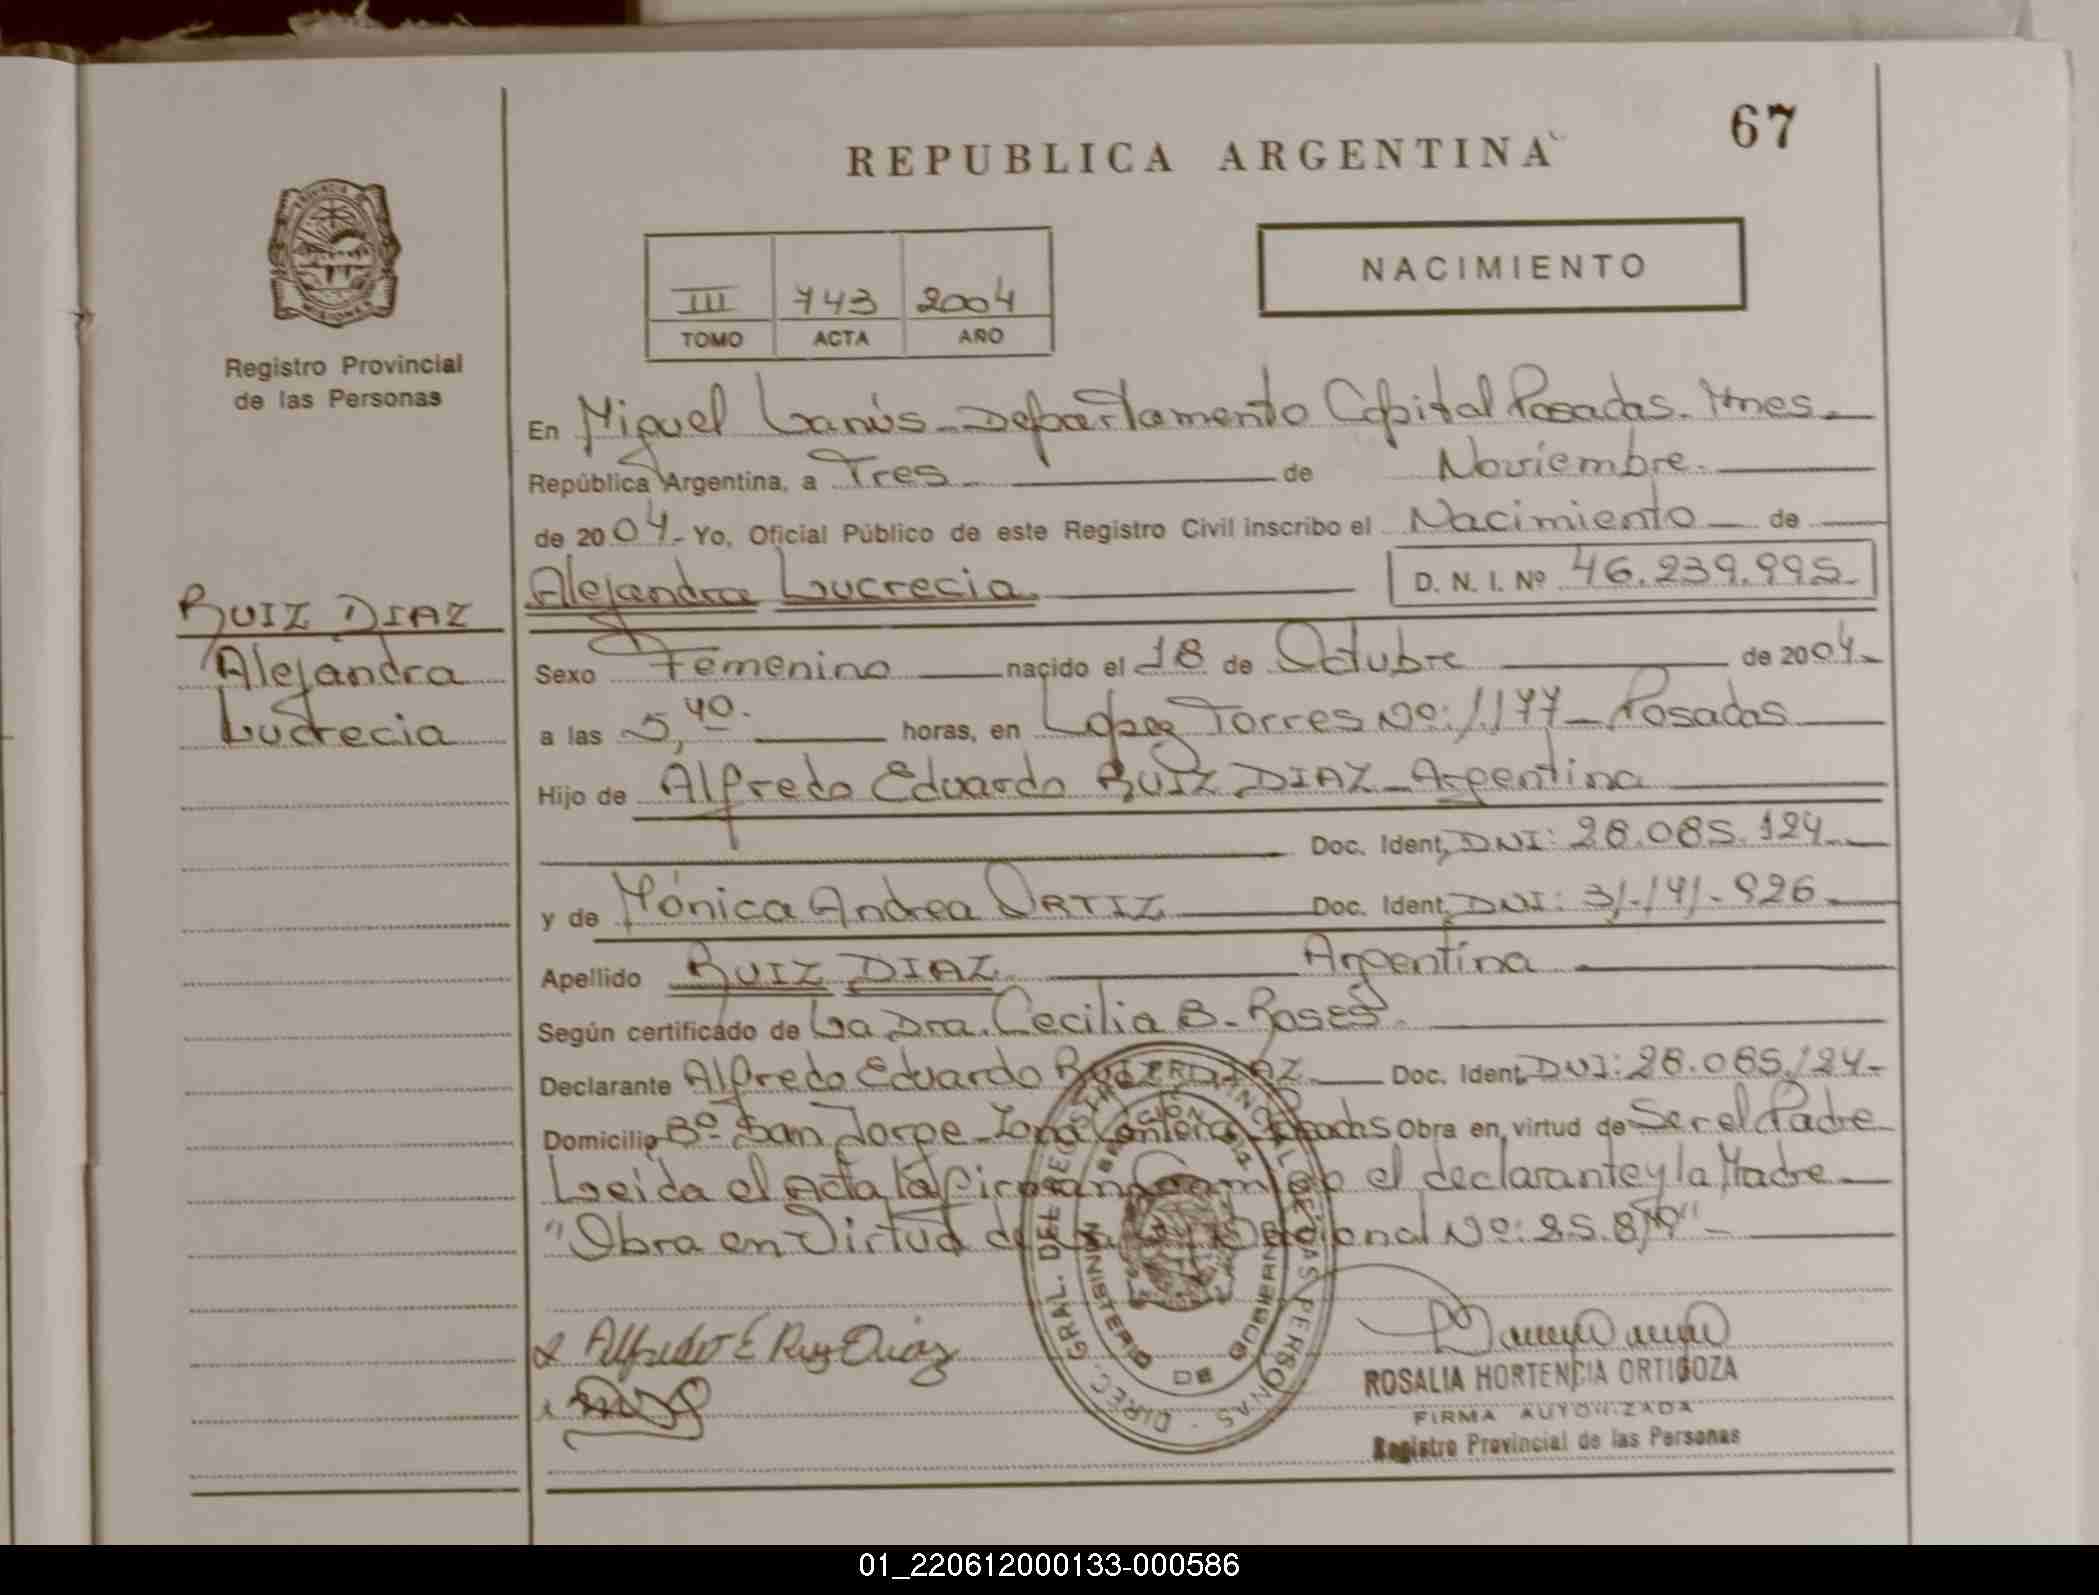 67
REPUBLICA ARGENTINA
NACIMIENTO
III 743 2004
TOMO ACTA AÑO
Registro Provincial
de las Personas
En Miguel Lanús - Departamento Capital Posadas. Mnes.
República Argentina, a Tres de Noviembre.
de 2004. Yo, Oficial Público de este Registro Civil inscribo el Nacimiento de
Alejandra Lucrecia D. N. I. Nº 46.239.995
RUIZ DIAZ
Alejandra
Lucrecia
Sexo Femenino nacido el 18 de Octubre de 2004.
a las 5,40. horas, en López Torres Nº: 1.177 - Posadas
Hijo de Alfredo Eduardo RUIZ DIAZ - Argentina
Doc. Ident. DNI: 28.085.124
y de Mónica Andrea ORTIZ Doc. Ident. DNI: 31.141.926
Apellido RUIZ DIAZ Argentina
Según certificado de La Dra. Cecilia B. Roses
Declarante Alfredo Eduardo RUIZ DIAZ Doc. Ident. DNI: 28.085.124
Domicilio Bº San Jorge - Zona Posadas Obra en virtud de Ser el Padre
Leida el Acta la firman el declarante y la Madre
"Obra en Virtud de la Ley Nacional Nº: 25.819"
DIREC. GRAL. DEL REGISTRO PROVINCIAL DE LAS PERSONAS
MINISTERIO DE GOBIERNO
Alfredo E Ruiz Diaz
ROSALIA HORTENCIA ORTIGOZA
FIRMA AUTORIZADA
Registro Provincial de las Personas
01_220612000133-000586